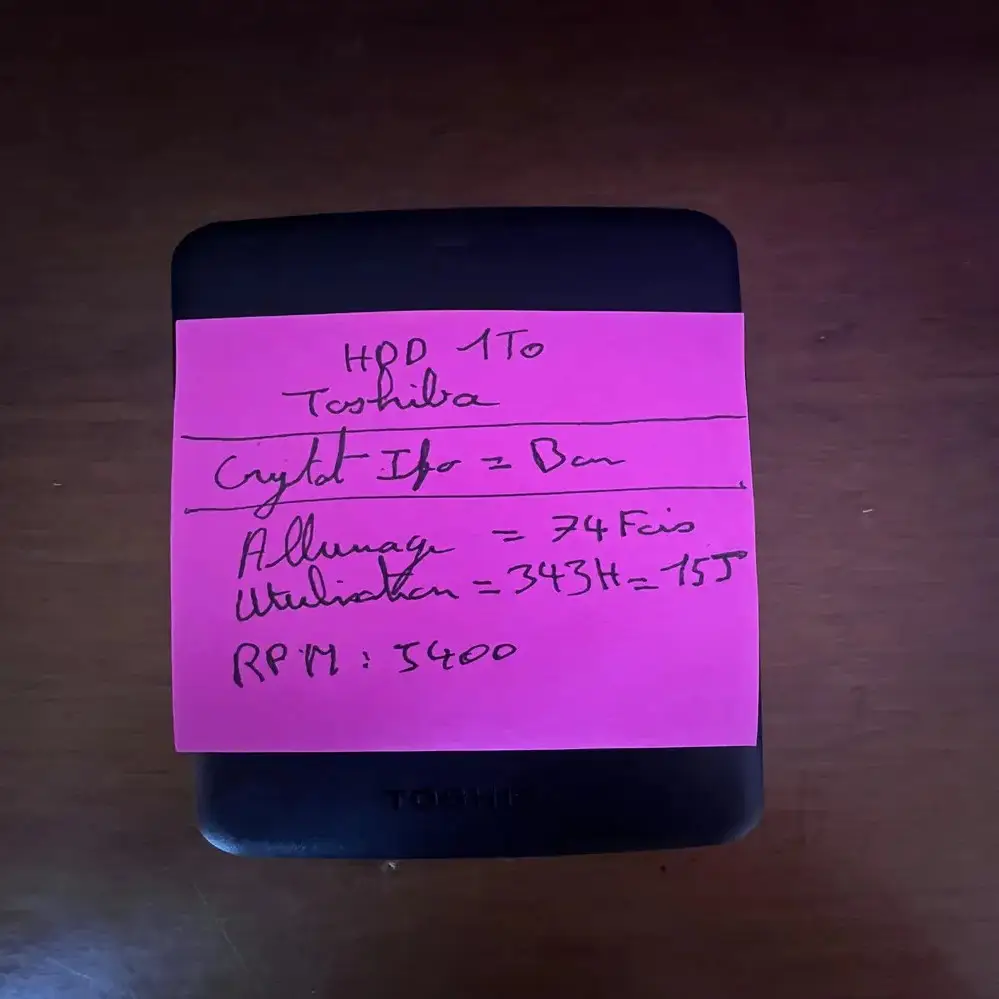 HDD 1To
Toshiba
Crystal Ifo = Bon
Allumage = 74 Fois
Utilisation = 343H = 15J
RPM : 5400
TOSHI